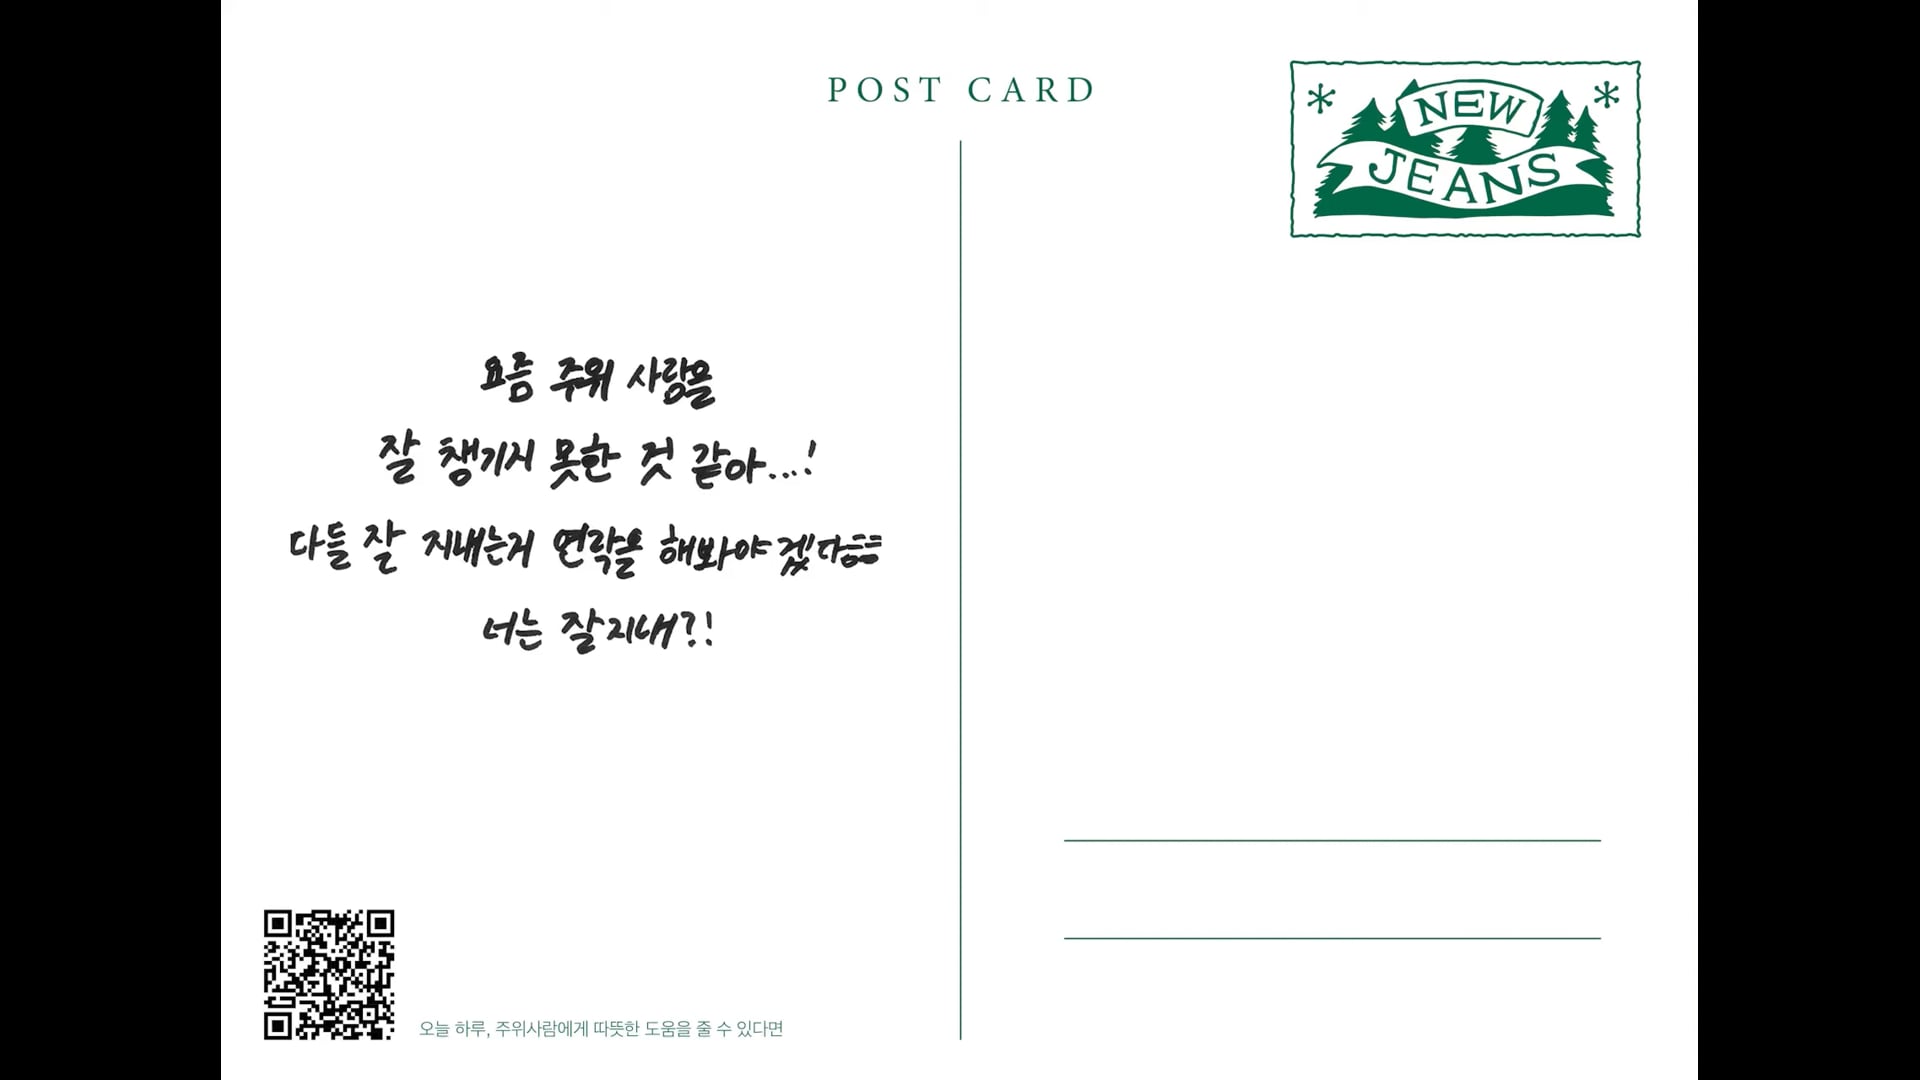 POST CARD
NEW
JEANS
요즘 주위 사람을
잘 챙기지 못한 것 같아...!
다들 잘 지내는지 연락을 해봐야겠다
너는 잘지내?!
오늘 하루, 주위사람에게 따뜻한 도움을 줄 수 있다면